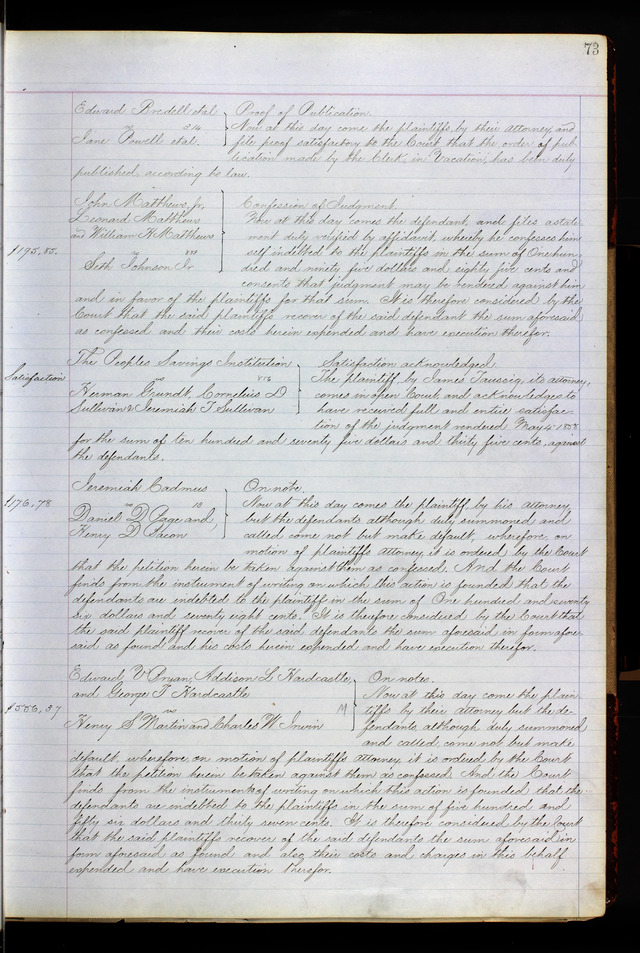 73
Edward Bredell et al } Proof of Publication.
vs 314 Now at this day come the plaintiffs, by their attorney, and
Jane Powell et al. file proof satisfactory to the Court that the order of pub-
lication made by the Clerk in Vacation, has been duly
published according to law.
John Matthews, Jr, Confession of Judgment.
Leonard Matthews Now at this day comes the defendant, and files a state-
and William H Matthews ment duly verified by affidavit, whereby he confesses him
$195,85. vs self indebted to the plaintiffs in the sum of One hun-
Seth Johnson Jr dred and ninety five dollars and eighty five cents and
consents that judgment may be rendered against him
and in favor of the plaintiffs for that sum. It is therefore considered by the
Court that the said plaintiffs recover of the said defendant the sum aforesaid
as confessed and their costs herein expended and have execution therefor.
The Peoples Savings Institution Satisfaction acknowledged.
Satisfaction vs 816 The plaintiff, by James Taussig, its attorney,
Herman Grundt, Cornelius D comes in open Court, and acknowledges to
Sullivan & Jeremiah T Sullivan have received full and entire satisfac-
tion of the judgment rendered May 4 1858
for the sum of ten hundred and seventy five dollars and thirty five cents, against
the defendants.
Jeremiah Cadmus On note.
$176,78 vs 10 Now at this day comes the plaintiff by his attorney
Daniel D Page and but the defendants although duly summoned and
Henry D Bacon called come not but make default, wherefore, on
motion of plaintiffs attorney, it is ordered by the Court
that the petition herein be taken against them as confessed. And the Court
finds from the instrument of writing on which this action is founded that the
defendants are indebted to the plaintiff in the sum of One hundred and seventy
six dollars and seventy eight cents. It is therefore considered by the Court that
the said plaintiff recover of the said defendants the sum aforesaid in form afore-
said as found and his costs herein expended and have execution therefor.
Edward V Pryan, Addison L, Hardcastle, On notes.
and George T Hardcastle Now at this day come the plain-
$556,37 vs 19 tiffs by their attorney but the de-
Henry S Martin and Charles W. Irwin fendants although duly summoned
and called, come not but make
default, wherefore, on motion of plaintiffs attorney, it is ordered by the Court
that the petition herein be taken against them as confessed. And the Court
finds from the instruments of writing on which this action is founded that the
defendants are indebted to the plaintiffs in the sum of five hundred and
fifty six dollars and thirty seven cents. It is therefore considered by the Court
that the said plaintiffs recover of the said defendants the sum aforesaid in
form aforesaid as found and also their costs and charges in this behalf
expended and have execution therefor.